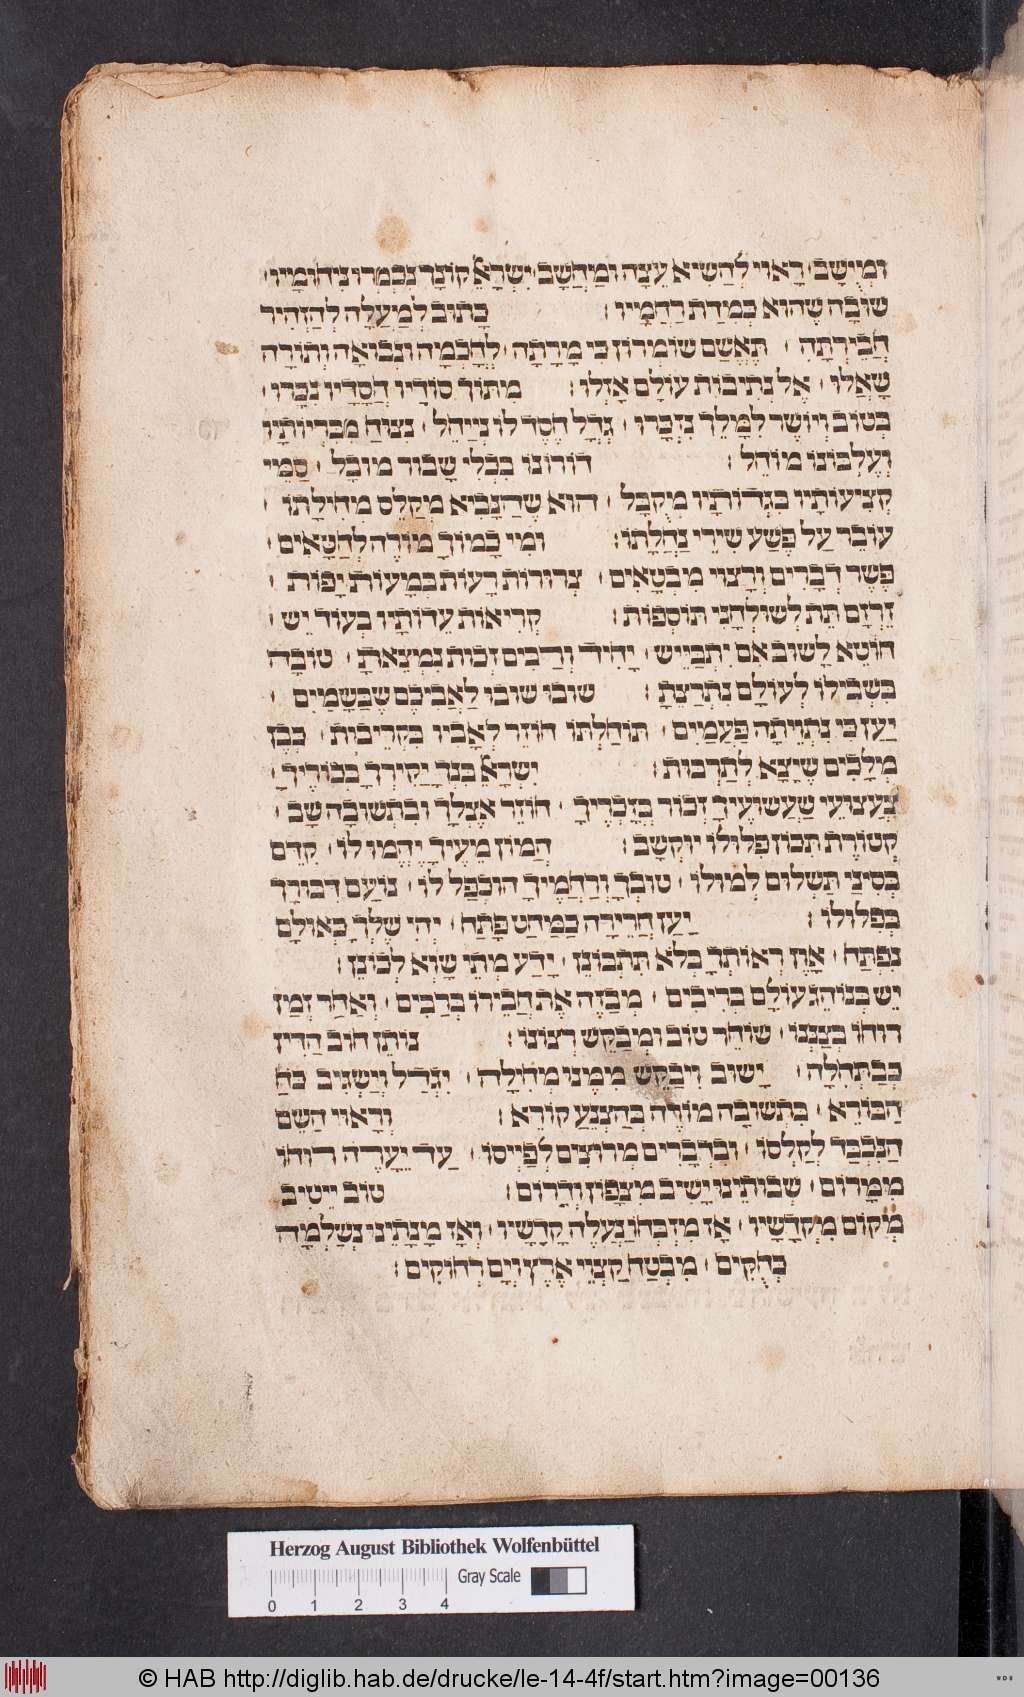 וּמְיֻשָּׁב׃ רָאוּי לְהַשִּׂיא עֵצָה וּמַחֲשָׁב׃ יִשְׂרָאֵ קוֹנָךְ נִכְמְרוּ נִיחוּמָיו׃
שׁוּבָה שֶׁהוּא בְּמִדַּת רַחֲמָיו׃ כָּתוּב לְמַעְלָה לְהַזְהִיר
חֲבֵירְתָּהּ׃ תֶּאְשַׁם שׁוֹמְרוֹן כִּי מָרָתָה׃ לְחָכְמָה וּנְבוּאָה וְתוֹרָה
שָׁאֲלוּ׃ אֶל נְתִיבוֹת עוֹלָם אָזְלוּ׃ מִתּוֹךְ סוֹדָיו חֲסָדָיו נִכָּרוּ׃
בְּטוֹב וְיוֹשֶׁר לַמֶּלֶךְ נִזְכָּרוּ׃ גְּדָל חֶסֶד לוֹ נְיַיחֵל׃ נִצּוּחַ מִבְּרִיּוֹתָיו
וְעֶלְבּוֹנוֹ מוֹחֵל׃ דּוֹרוֹנוֹ בִּכְלִי שָׁבוּר מוּבָל׃ סַמֵּי
קְצִיעוֹתָיו כִּגְדוּדָיו מְקַבֵּל׃ הוּא שֶׁהַנָּבִיא מְקַלֵּס מְחִילָתוֹ׃
עוֹבֵר עַל פֶּשַׁע שִׁירֵי נַחֲלָתוֹ׃ וּמִי כָּמוֹךָ מוֹרֶה לַחַטָּאִים׃
פֶּשֶׁר דְּבָרִים וְרָצוּי מִבְטָאִים׃ צְרוּרוֹת רָעוֹת בְּמָעוֹת יָפוֹת׃
זֵרְזָם תֵּת לְשׁוּלְחָנִי תּוֹסָפוֹת׃ קְרִיאוֹת עֵדוֹתָיו בְּעוֹד יֵשׁ׃
חוֹטֵא לָשׁוּב אִם יִתְבַּיֵּישׁ׃ יָחִיד וְרַבִּים זְכוּת נִמְצֵאת׃ טוֹבָה
בִּשְׁבִילוֹ לְעוֹלָם נִתְרַצֵּתָ׃ שׁוּבוּ שׁוּבוּ לַאֲבִיכֶם שֶׁבַּשָּׁמַיִם׃
יַעַן כִּי נִתְוַיתָה פַּעֲמַיִם׃ תּוֹחַלְתּוֹ חוֹזֵר לְאָבִיו בִּקְרֵיבוּת׃ כְּבֶן
מְלָכִים שֶׁיָּצָא לְתַרְבּוּת׃ יִשְׂרָאֵ בִּנְךָ יַקִּירְךָ בְּכוֹרֶיךָ׃
צַעֲצוּעֵי שַׁעֲשׁוּעֶיךָ זְכוֹר בְּזָכְרֶיךָ׃ חוֹזֵר אֶצְלָךְ וּבִתְשׁוּבָה שָׁב׃
קְטוֹרֶת תִּכּוֹן פִּלּוּלוֹ יוּקְשָׁב׃ הֲמוֹן מֵעֶיךָ יֶהֱמוּ לוֹ׃ קִדֵּם
בְּסִינַי תַּשְׁלוּם לְמוּלוֹ׃ טוּבְךָ וְרַחֲמֶיךָ הוּכְפַּל לוֹ׃ נוֹעַם דִּבּוּרָךְ
בְּפִלּוּלוֹ׃ יַעַן חֲרֵירָה כַּמַּחַט פָּתַח׃ יְהִי שֶׁלְּךָ כְּאוּלָם
נִפְתַּח׃ אָוֶן רְאוֹתָךְ בְּלֹא תִתְבּוֹנֵן׃ יָדַע מְתֵי שָׁוְא לְכוֹנֵן׃
יֵשׁ בְּנוֹהֵג עוֹלָם בְּרִיבִים׃ מְבַזֶּה אֶת חֲבֵירוֹ בְּרַבִּים׃ וְאַחַר זְמַן
רוּחוֹ בְּצַנְּנוֹ׃ שׁוֹחֵר טוֹב וּמְבַקֵּשׁ רְצוֹנוֹ׃ נוֹתֵן חוּב הַדִּין
כְּבַתְּחִלָּה׃ יָשׁוּב וִיבַקֵּשׁ מִמֶּנּוּ מְחִילָה׃ יִגְדַּל וְיַשְׂגִּיב כֹּחַ
הַבּוֹרֵא׃ בִּתְשׁוּבָה מוֹרֶה בְּהַצְנֵעַ קוֹרֵא׃ וְרָאוּי הַשֵּׁם
הַנִּכְבַּד לְקַלְּסוֹ׃ וּבִדְבָרִים מְרוּצִים לְפַיְּיסוֹ׃ עַד יֵעָרֶה רוּחוֹ
מִמָּרוֹם׃ שְׁבוּתֵינוּ יָשִׁיב מִצָּפוֹן וְדָרוֹם׃ טוֹב יֵיטִיב
מְקוֹם מִקְדָּשָׁיו׃ אָז מִזְבְּחוֹ נַעֲלֶה קָדָשָׁיו׃ וְאָז מָנָתֵינוּ נְשַׁלְּמָה
בְּחֻקִּים׃ מִבְטַח קַצְוֵי אֶרֶץ וְיָם רְחוֹקִים׃
Herzog August Bibliothek Wolfenbüttel
Gray Scale
0 1 2 3 4
© HAB http://diglib.hab.de/drucke/le-14-4f/start.htm?image=00136